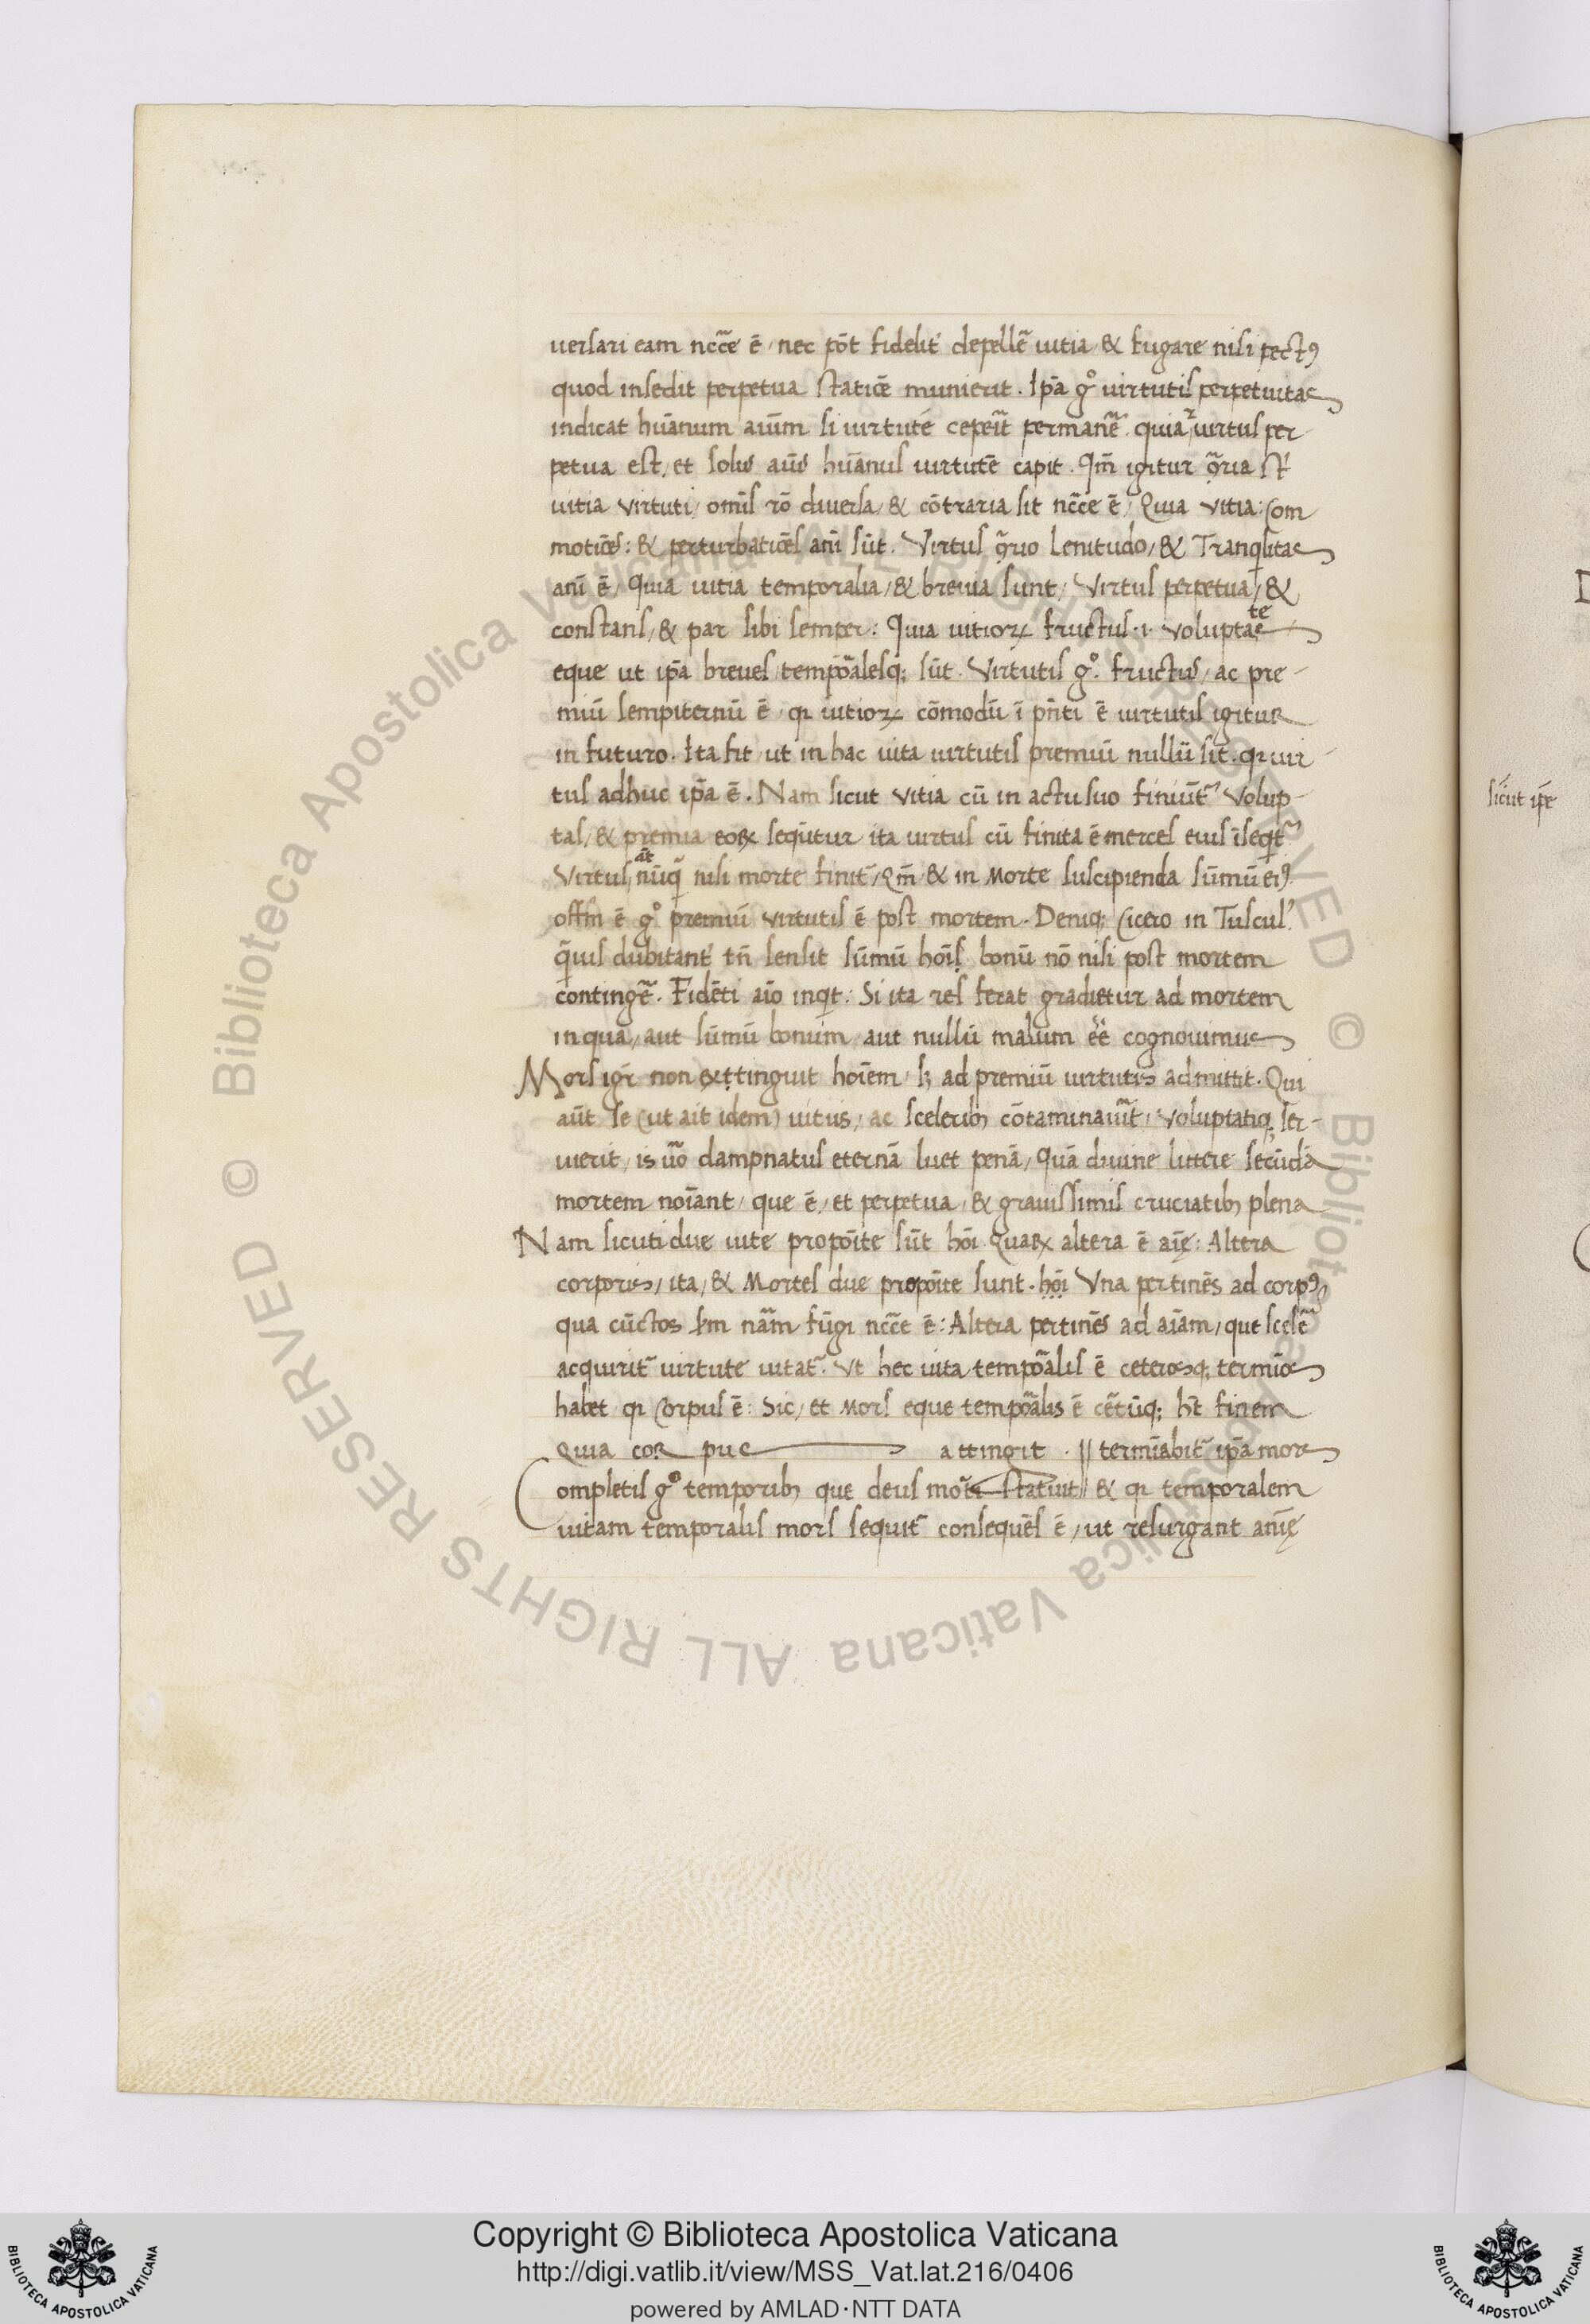 uersari eam nccē ē / nec pōt fidelit̄ depellē uitia / & fugare nisi pectꝰ
quod insedit perpetua statiōe munierit . Ip̄a gͦ uirtutis perpetuitas
indicat hūanum aīum si uirtutē ceperit̄ permanē . quia uirtus per
petua est / et solus aīus hūanus uirtutē capit . Qm̄ igitur ꝯ̄ria st̄
uitia virtuti / omīs rō diuersa / & cōtraria sit nccē ē / Quia vitia : Com
motiōes : & perturbatiōes anī sūt . Virtus ꝯ̄rio Lenitudo / & Tranqͥlitas
anī ē / Quia uitia temporalia / & breuia sunt / Virtus perpetua / &
constans / & par sibi semper : Quia uitioꝝ fructus .i. voluptate
eque ut ip̄a breues tempōralesq; sūt . Virtutis gͦ . fructus / ac pre-
miū sempiternū ē / qꝛ uitioꝝ cōmodū ī p̄nti ē uirtutis igitur
in futuro . Ita fit / ut in hac uita uirtutis premiū nullū sit . qꝛ uir-
tus adhuc ip̄a ē . Nam sicut vitia cū in actu suo finiūt̄ Volup-
tas / & premia eoꝝ seqūtur ita uirtus cū finita ē merces eius īseqͥt̄
Virtus at̄ nūqͣ nisi morte finit̄ / Qm̄ & in Morte suscipienda sūmū eiꝰ
offm̄ ē gͦ premiū virtutis ē post mortem . Deniq; Cicero in Tuscul̓
qͣuis dubitant̓ tn̄ sensit sūmū hoīs bonū nō nisi post mortem
contingē . Fidēti aīo inqͥt : Si ita res ferat gradietur ad mortem
in qua / aut sūmū bonūm aut nullū malum eē̄ cognouimus
Mors igr̄ non exttinguit hoīem / sꝫ ad premiū uirtutis admittit . Qui
aūt se (ut ait idem) uitiis / ac sceleribꝫ cōtaminauīt̄ / voluptatiq; ser-
uierit / is u̅o dampnatus eternā luet penā / Quā diuine littere secūdā
mortem noīant / que ē / et perpetua / & grauissimis cruciatibꝫ plena
Nam sicuti due uite propoīte sūt hōi Quaꝝ altera ē aīę : Altera
corporis / ita / & Mortes due propoīte sunt . hōi Vna pertinēs ad corpꝰ
qua cūctos s̄m nām̄ fūgi nccē ē : Altera pertinēs ad aīam / que scelē
acquirit̄ uirtute uitat̄ . Vt hec uita tempōralis ē ceterosq; termīos
habet qꝛ Corpus ē : Sic / et Mors eque tempōralis ē cēt̄ūq; hꝫ finem
Quia cor pus attingit . || termīabit̄ ip̄a mors
Completis gͦ temporibꝫ que deus mor̄ti statuit || & qꝛ temporalem
uitam temporalis mors sequit̄ consequēs ē / ut resurgant anīę
sicut ip̄e
Copyright © Biblioteca Apostolica Vaticana
http://digi.vatlib.it/view/MSS_Vat.lat.216/0406
powered by AMLAD·NTT DATA